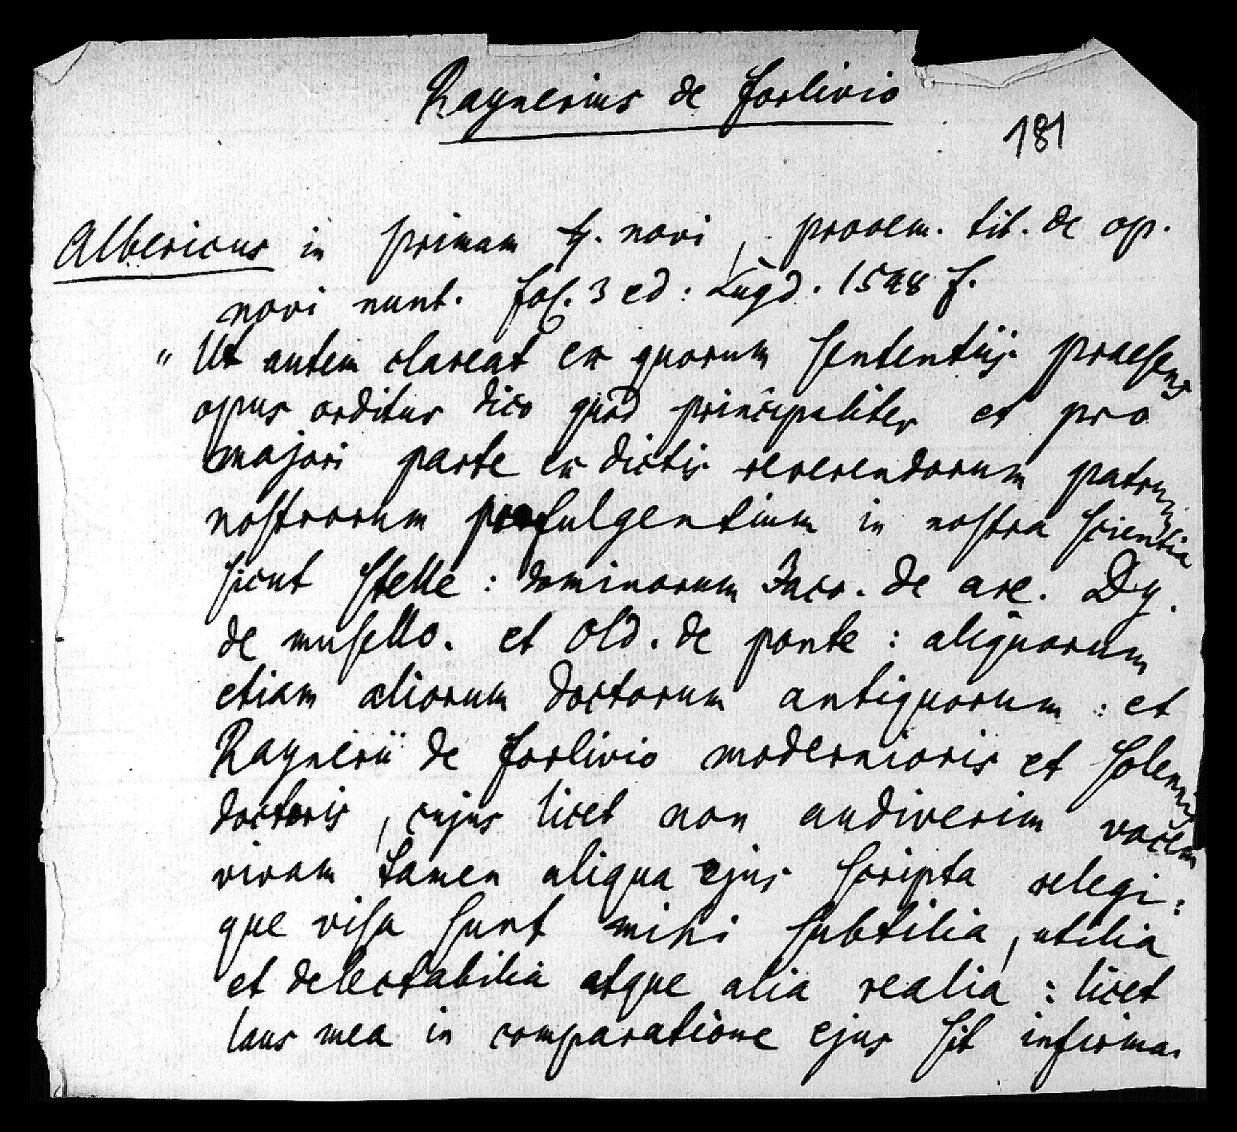 Raynerius de Forlivio
181
Albericus in primam ff. novi, prooem. tit. de op.
novi nunt. fol. 3 ed: Lugd. 1548 f.
" Ut autem clareat ex quorum sententiis praesens
opus orditur dico quod principaliter et pro
majori parte ex dictis reverendorum patrum
nostrorum praefulgentium in nostra scientia
sicut stelle: dominorum Jaco. de are. Dy.
de musello. et Old. de ponte: aliquorum
etiam aliorum doctorum antiquorum: et
Raynerii de Forlivio modernioris et solennis
doctoris, cujus licet non audiverim vocem
vivam tamen aliqua ejus scripta relegi:
que visa sunt mihi subtilia, utilia
et delectabilia atque alia realia: licet
laus mea in comparatione ejus sit infirma.